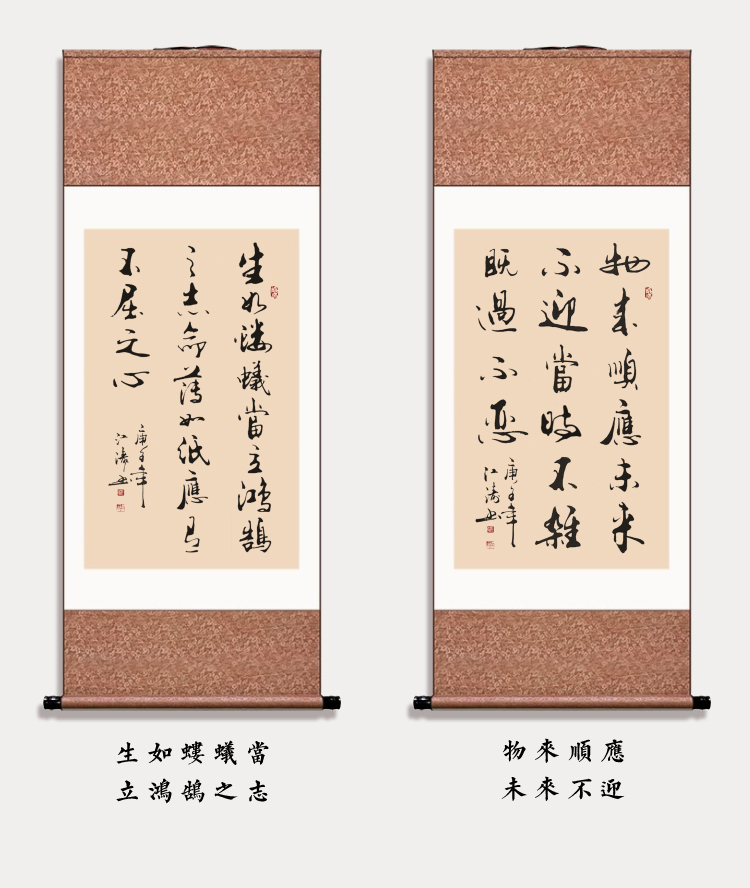 生如螻蟻當立鴻鵠
之志命薄如紙應有
不屈之心
庚子年
江濤書
生如螻蟻當
立鴻鵠之志
物來順應未來
不迎當時不雜
既過不戀
庚子年
江濤書
物來順應
未來不迎